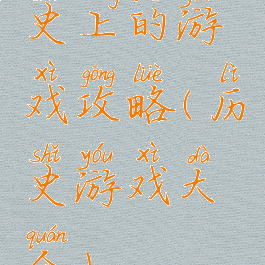 史上的游
xì gōng lüè lì
戏攻略(历
shǐ yóu xì dà
史游戏大
quán
全)